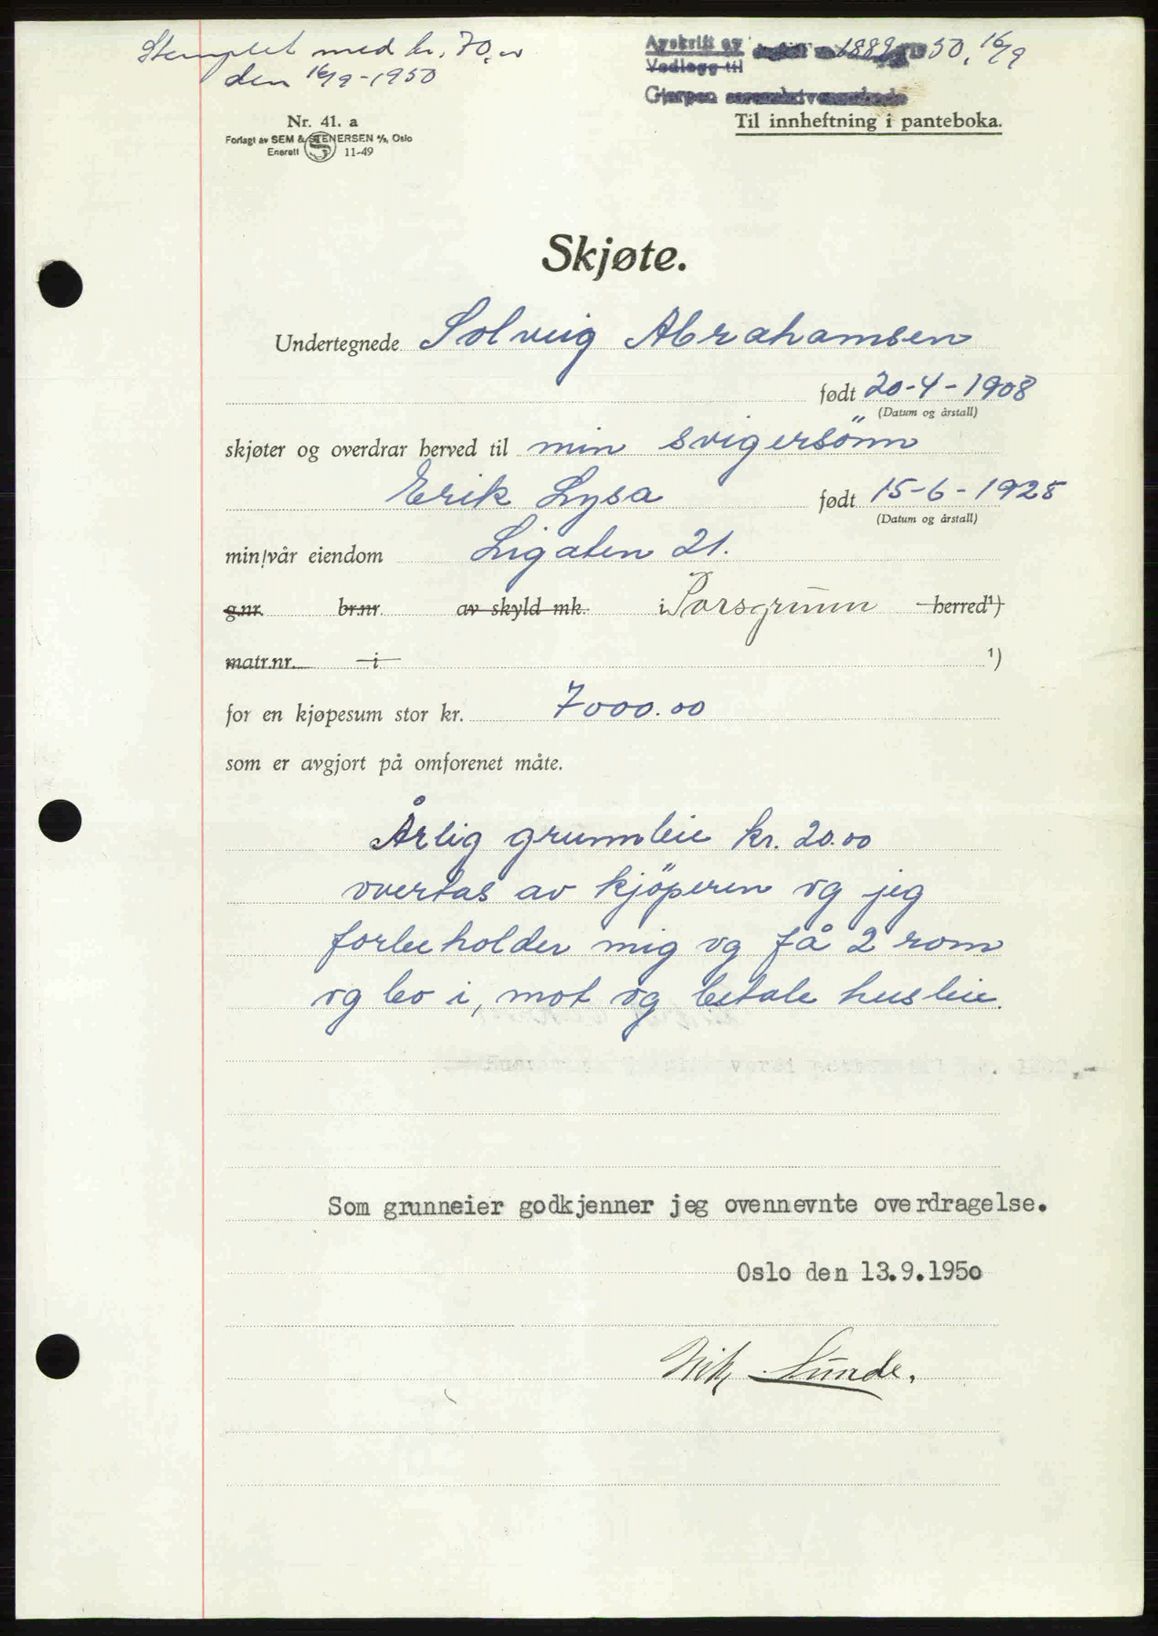 Stemplet med kr. 70.00
den 16/9-1950
Avskrift av
1889/1950, 16/9
Vedlegg til
Gjerpen sorenskriverembede
Nr. 41. a
Forlagt av SEM & STENERSEN A/S, Oslo
Enerett 11-49
Til innheftning i panteboka.
Skjøte.
Undertegnede Solveig Abrahamsen
født 20-4-1908
(Datum og årstall)
skjøter og overdrar herved til min svigersönn
Erik Lysa født 15-6-1925
(Datum og årstall)
min/vår eiendom Ligaten 21.
g.nr. br.nr. av skyld mk. i Porsgrunn herred¹)
matr.nr. i ¹)
for en kjøpesum stor kr. 7000.00
som er avgjort på omforenet måte.
Årlig grunnleie kr. 20.00
overtas av kjöperen og jeg
forbeholder mig og få 2 rom
og bo i, mot og betale husleie.
Som grunneier godkjenner jeg ovennevnte overdragelse.
Oslo den 13.9.1950
Sunde.